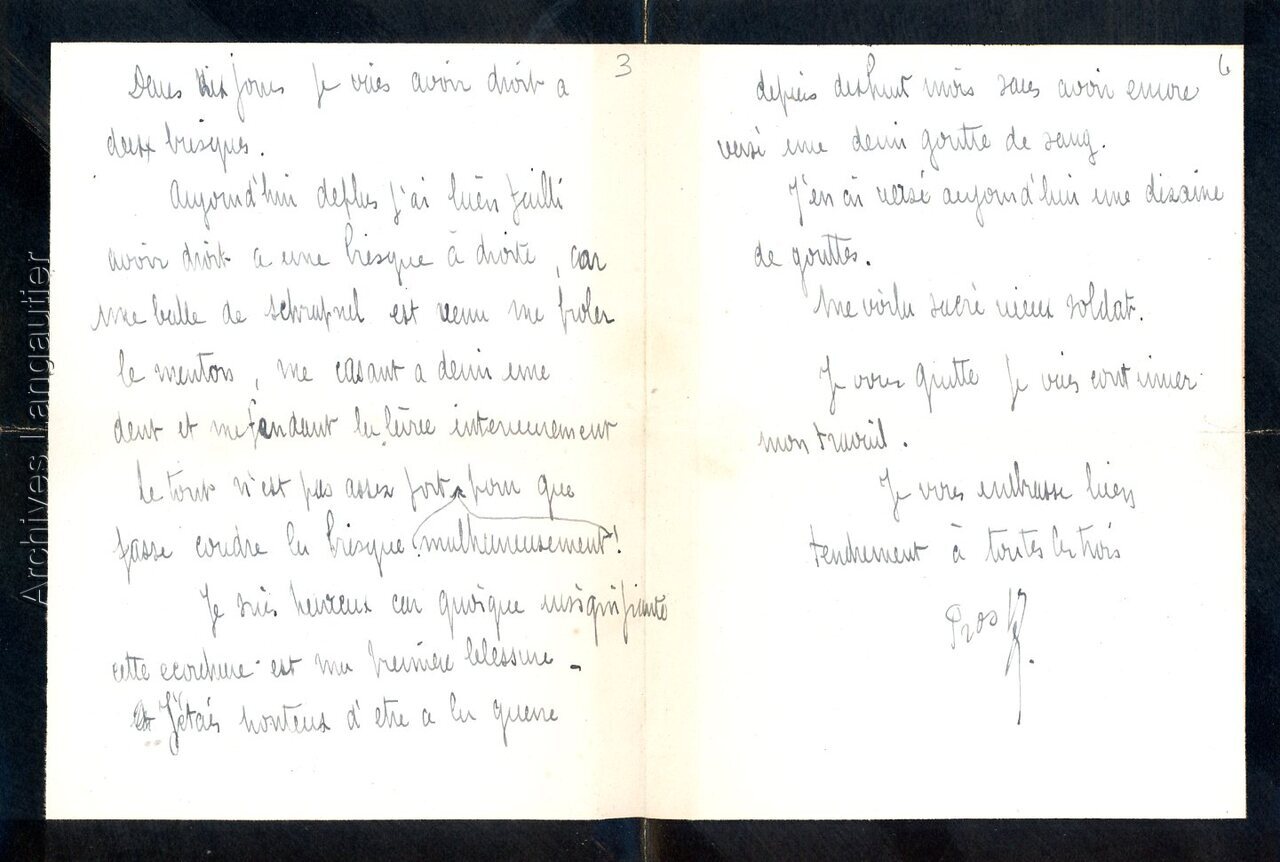 3
Dans dix jours je vais avoir droit a
deux brisques.
Aujourd'hui deplus j'ai bien failli
avoir droit a une brisque à droite, car
une balle de schrapnel est venu me froler
le menton, me casant a demi une
dent et me fendant la levre interieurement
Le tout n'est pas assez fort pour que
fasse coudre la brisque malheureusement!
Je suis heureux car quoique insignifiante
cette ecorchure est ma premiere blessure -
Et J'étais honteux d'etre a la guerre
6
depuis dixhuit mois sans avoir encore
versé une demi goutte de sang.
J'en ai versé aujourd'hui une dizaine
de gouttes.
Me voilà sacré vieux soldat.
Je vous quitte je vais continuer
mon travail.
Je vous embrasse bien
tendrement à toutes les trois
Archives Langautier